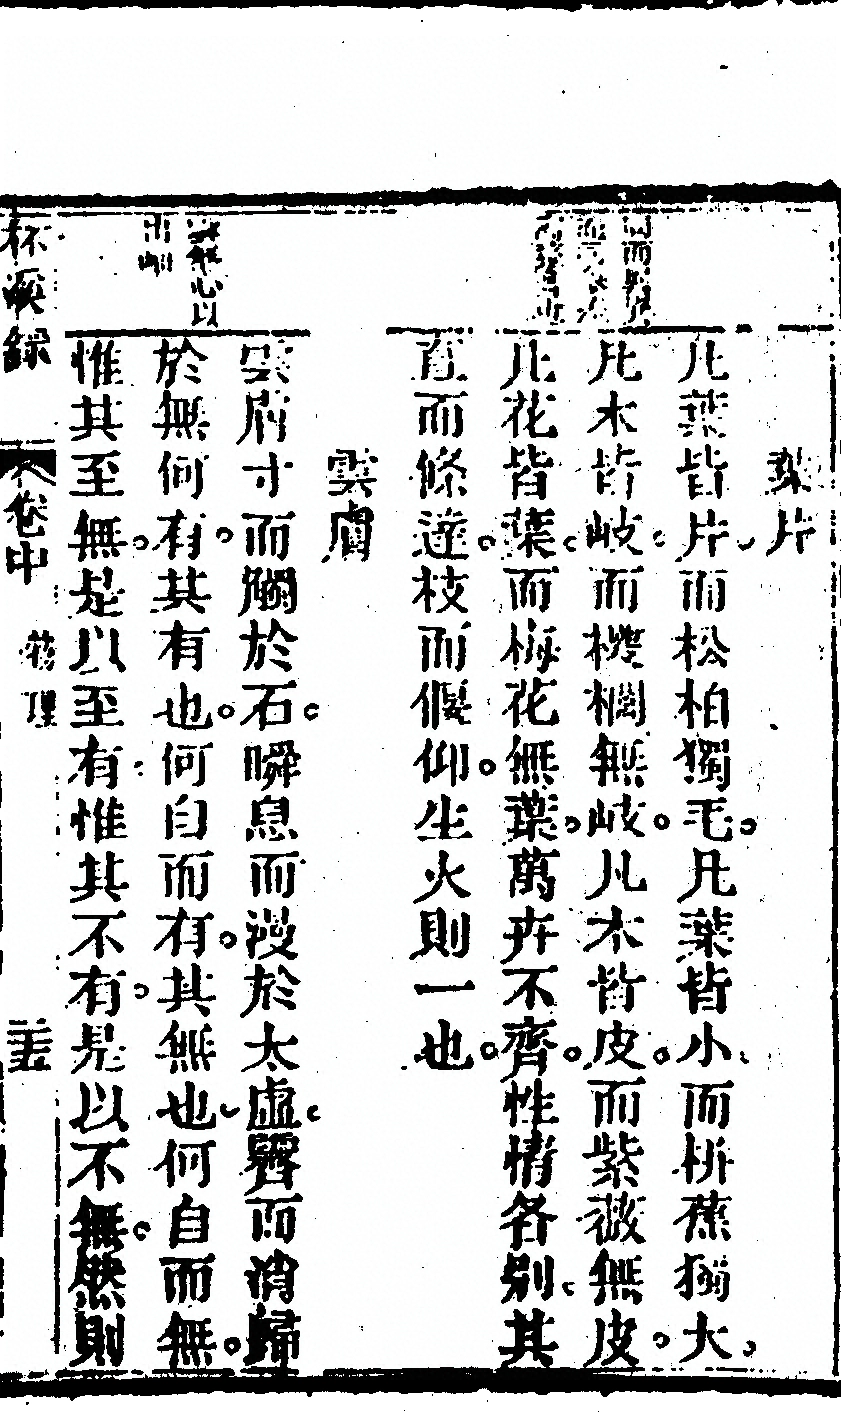 葉片
凡葉皆片而松柏獨毛凡葉皆小而栟蕉獨大
凡木皆岐而椶櫚無岐凡木皆皮而紫薇無皮
凡花皆葉而梅花無葉萬卉不齊性情各別其
直而條達枝而偃仰生火則一也
雲膚
雲膚寸而觸於石瞬息而漫於太虛霽而消歸
於無何有其有也何自而有其無也何自而無
惟其至無是以至有惟其不有是以不無然則
無心以
出岫
溪錄
卷中
物理